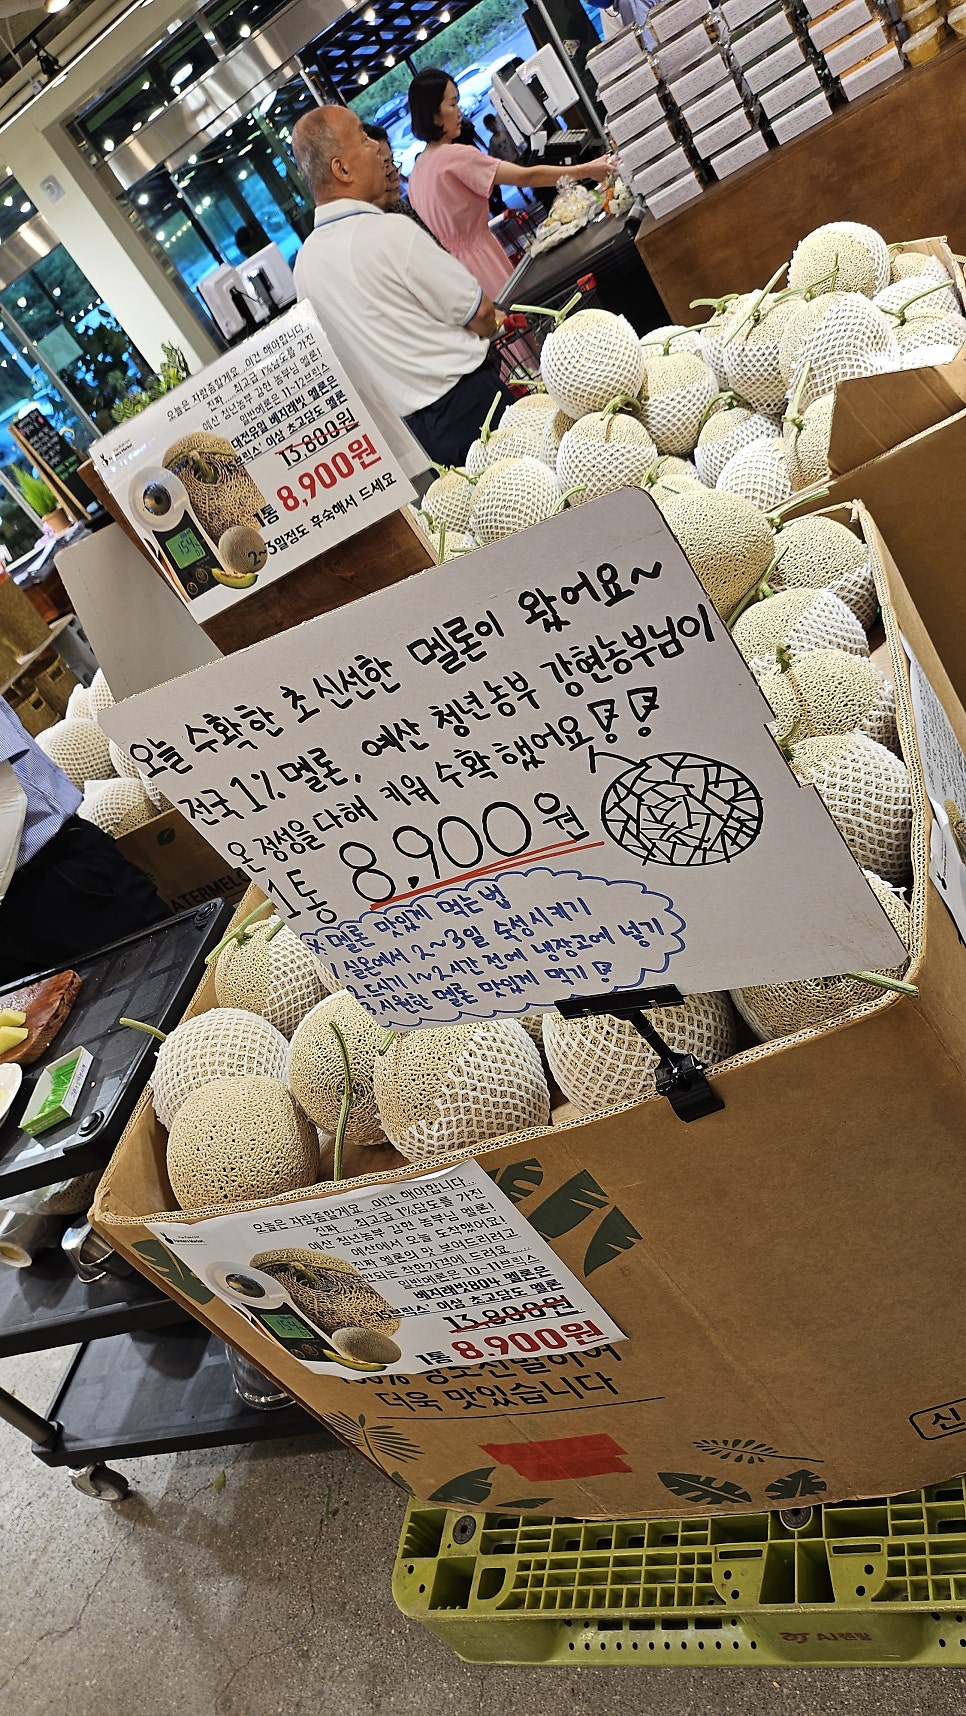 오늘은 자랑좀할게요...이건 해야합니다...
진짜.....최고급 1%당도를 가진
예산 청년농부 강현 농부님 멜론!
일반메론은 11~12브릭스
대전유일 베지래빗 멜론은
15브릭스 이상 초고당도 멜론
13,800원
1통 8,900원
2~3일정도 후숙해서 드세요
오늘 수확한 초 신선한 멜론이 왔어요~
전국 1% 멜론, 예산 청년농부 강현농부님이
온 정성을 다해 키워 수확했어요!!
1통 8,900원
※ 멜론 맛있게 먹는법
1. 실온에서 2~3일 숙성시키기
2. 드시기 1~2시간 전에 냉장고에 넣기
3. 시원한 멜론 맛있게 먹기!
오늘은 자랑좀할게요...이건 해야합니다...
진짜.....최고급 1%당도를 가진
예산 청년농부 강현 농부님 멜론!
예산에서 오늘 도착했어요!
진짜 멜론의 맛 보여드리려고
말도안되는 착한가격에 드려요......
일반메론은 10~11브릭스
베지래빗804 멜론은
15브릭스 이상 초고당도 멜론
13,800원
1통 8,900원
더욱 맛있습니다
신
WATERMELON
AJ렌탈